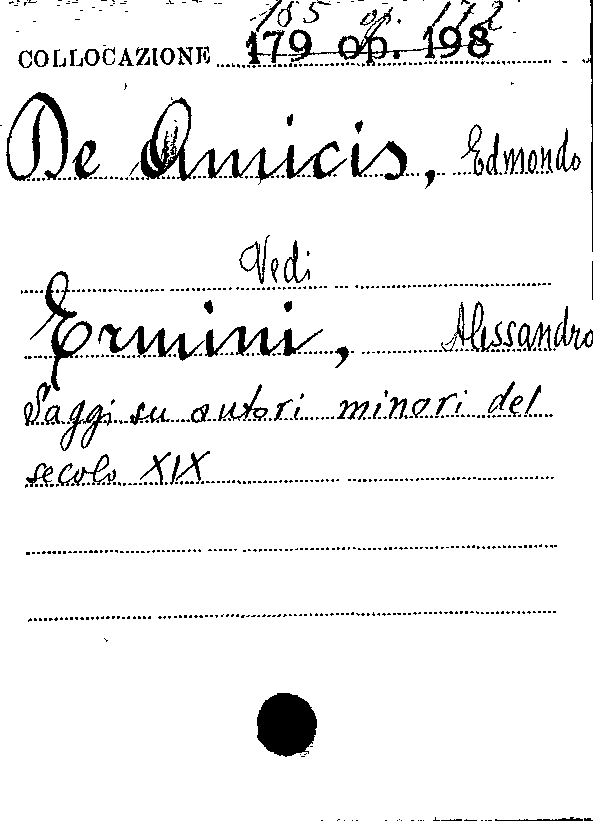 185 op. 172
COLLOCAZIONE 179 op. 198
De Amicis, Edmondo
Vedi
Ermini, Alessandro
Saggi su autori minori del
secolo XIX